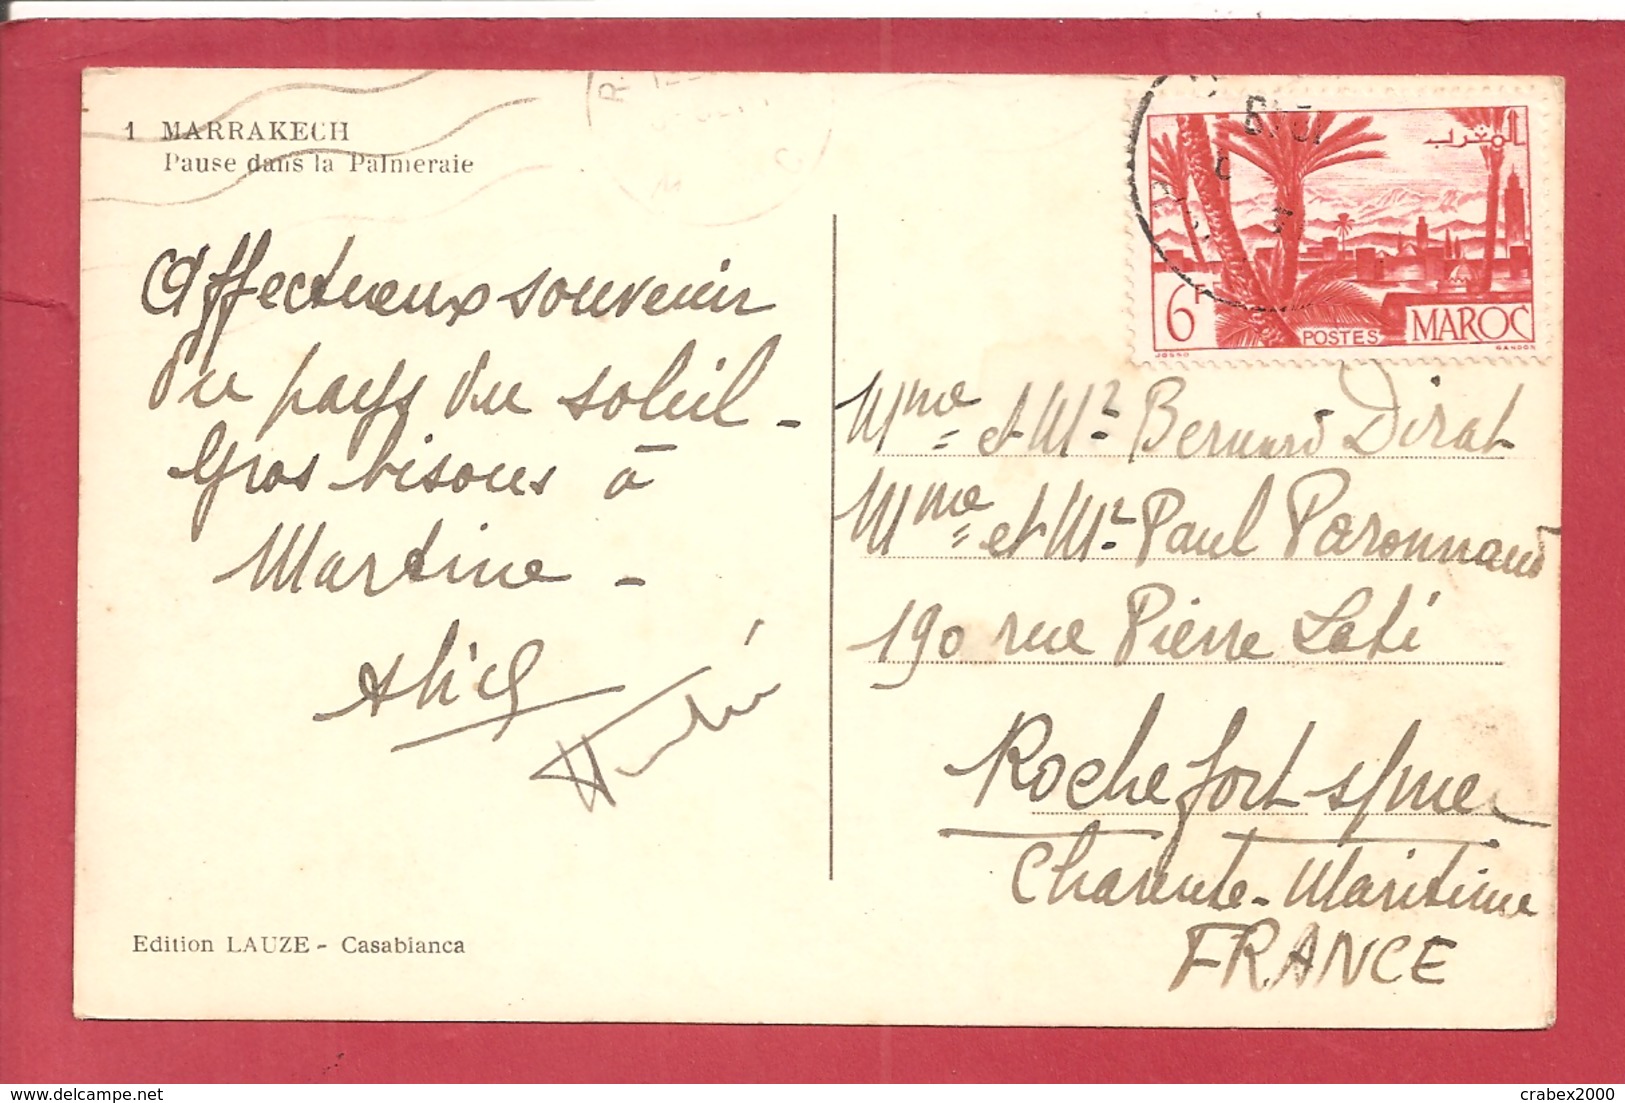 1 MARRAKECH
Pause dans la Palmeraie
Affectueux souvenir
du pays du soleil -
Gros bisous à
Martine -
Alice
Edition LAUZE - Casabianca
المغرب
6F
POSTES
MAROC
GANDON
Mme et Mr Bernard Dirat
Mme et Mr Paul Paronnaud
190 rue Pierre Loti
Rochefort s/mer
Charente-Maritime
FRANCE
crabex2000